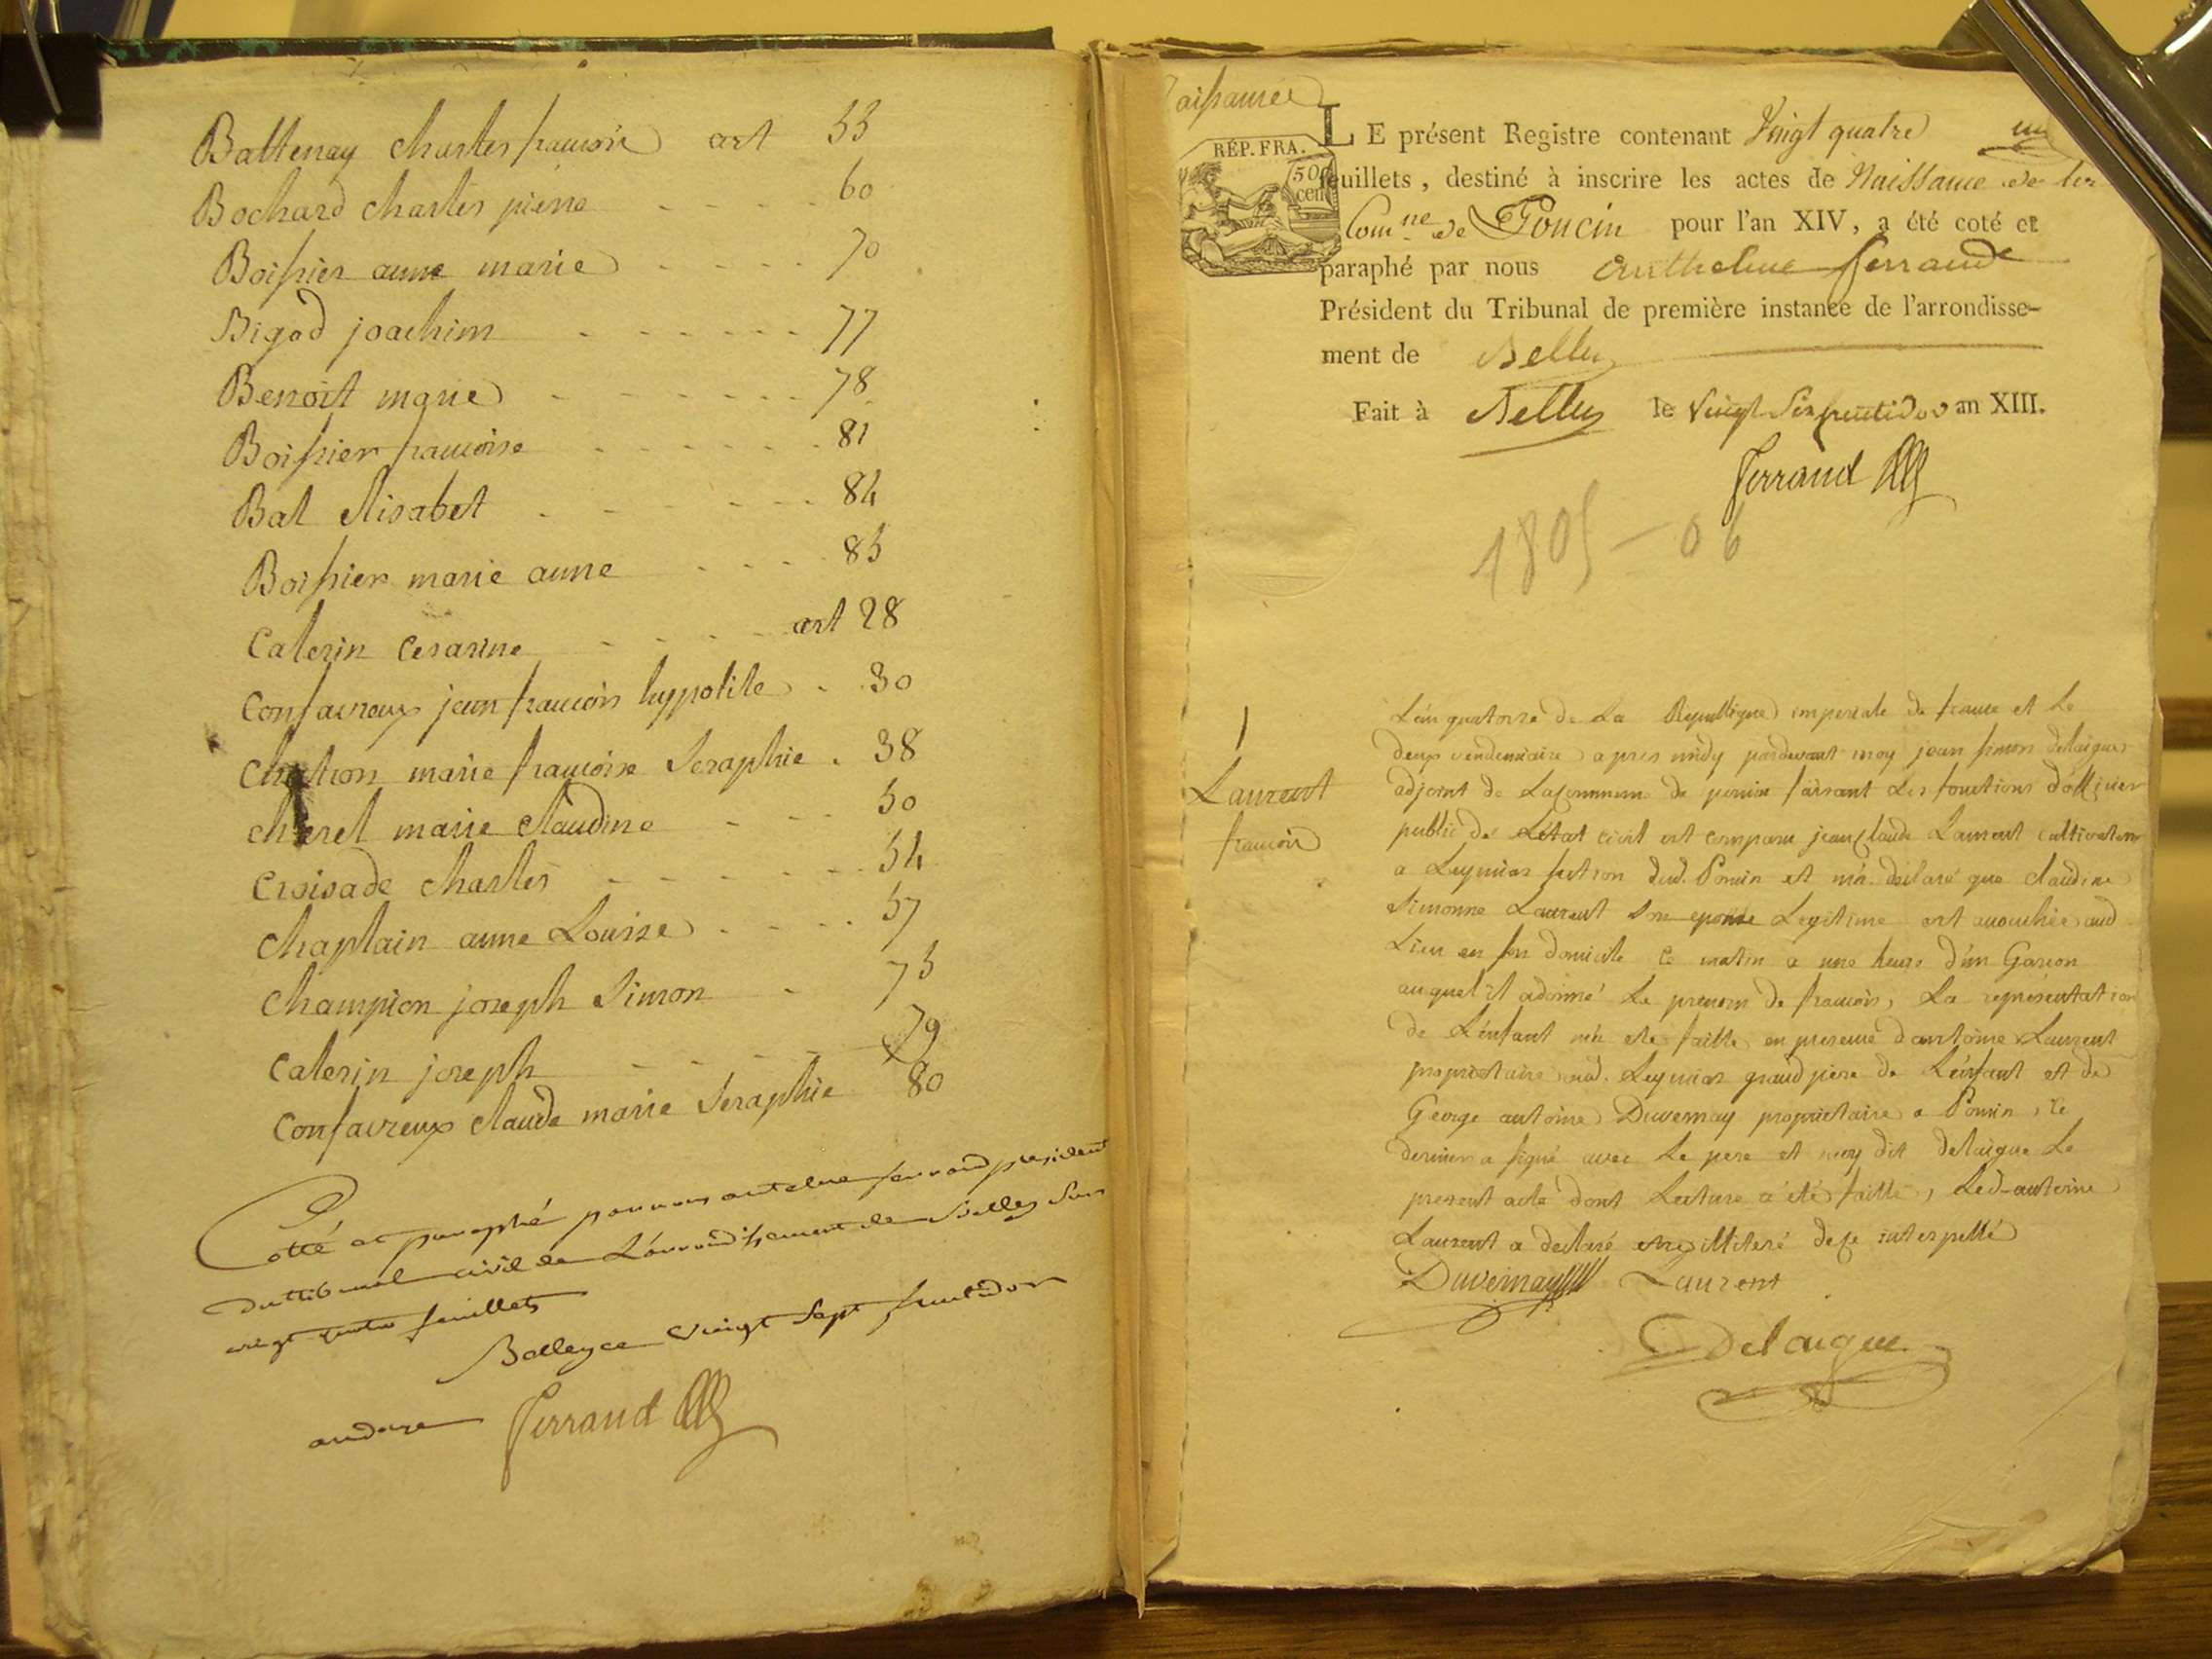 Battenay charles francois art 55
Bochard charles pierre 60
Boissier anne marie 70
Bigod joachim 77
Benoit marie 78
Boissier francoise 81
Bal Elisabet 84
Boissier marie anne 85
Caterin Cesarine art 28
Confavreux jean francois hyppolite 30
Chatron marie francoise Seraphie 38
cherel marie Claudine 50
Croisade Charles 54
Chaplain anne Louise 57
Champion joseph Simon 75
Caterin joseph 79
Confavreux claude marie Seraphie 80
Cotté et paraphé par nous antelme ferrand president
du tribunal civil de L'arrondissement de Belley sur
vingt quatre feuillets
Belley ce vingt Sept fructidor
an douze Ferrand
Naissance
RÉP. FRA.
50 cen
LE présent Registre contenant Vingt quatre
feuillets, destiné à inscrire les actes de Naissance de la
Comne de Poncin pour l'an XIV, a été coté et
paraphé par nous Anthelme ferrand
Président du Tribunal de première instance de l'arrondisse-
ment de Belley
Fait à Belley le Vingt Six fructidor an XIII.
Ferrand
1805-06
1
Laurent
francois
L'an quatorze de La Republique imperiale de france et Le
deux vendemiaire apres midy pardevant moy jean simon delaigue
adjoint de La Commune de poncin faisant Les fonctions d'officier
public de L'état civil est comparu jean Claude Laurent cultivateur
a Leymiat section dud. Poncin et m'a déclaré que claudine
Simonne Laurent Son epouse Legitime est accouchée aud
Lieu en son domicile ce matin a une heure d'un Garcon
auquel il a donné Le prenom de francois, La representation
de L'enfant m'a ete faitte en presence d'antoine Laurent
proprietaire aud. Leymiat grand pere de L'enfant et de
George antoine Duvernay proprietaire a Poncin, ce
dernier a signé avec Le pere et moy dit delaigue Le
present acte dont Lecture a été faitte, Led. antoine
Laurent a declaré etre illiteré de ce interpellé
Duvernay Laurent
Delaigue